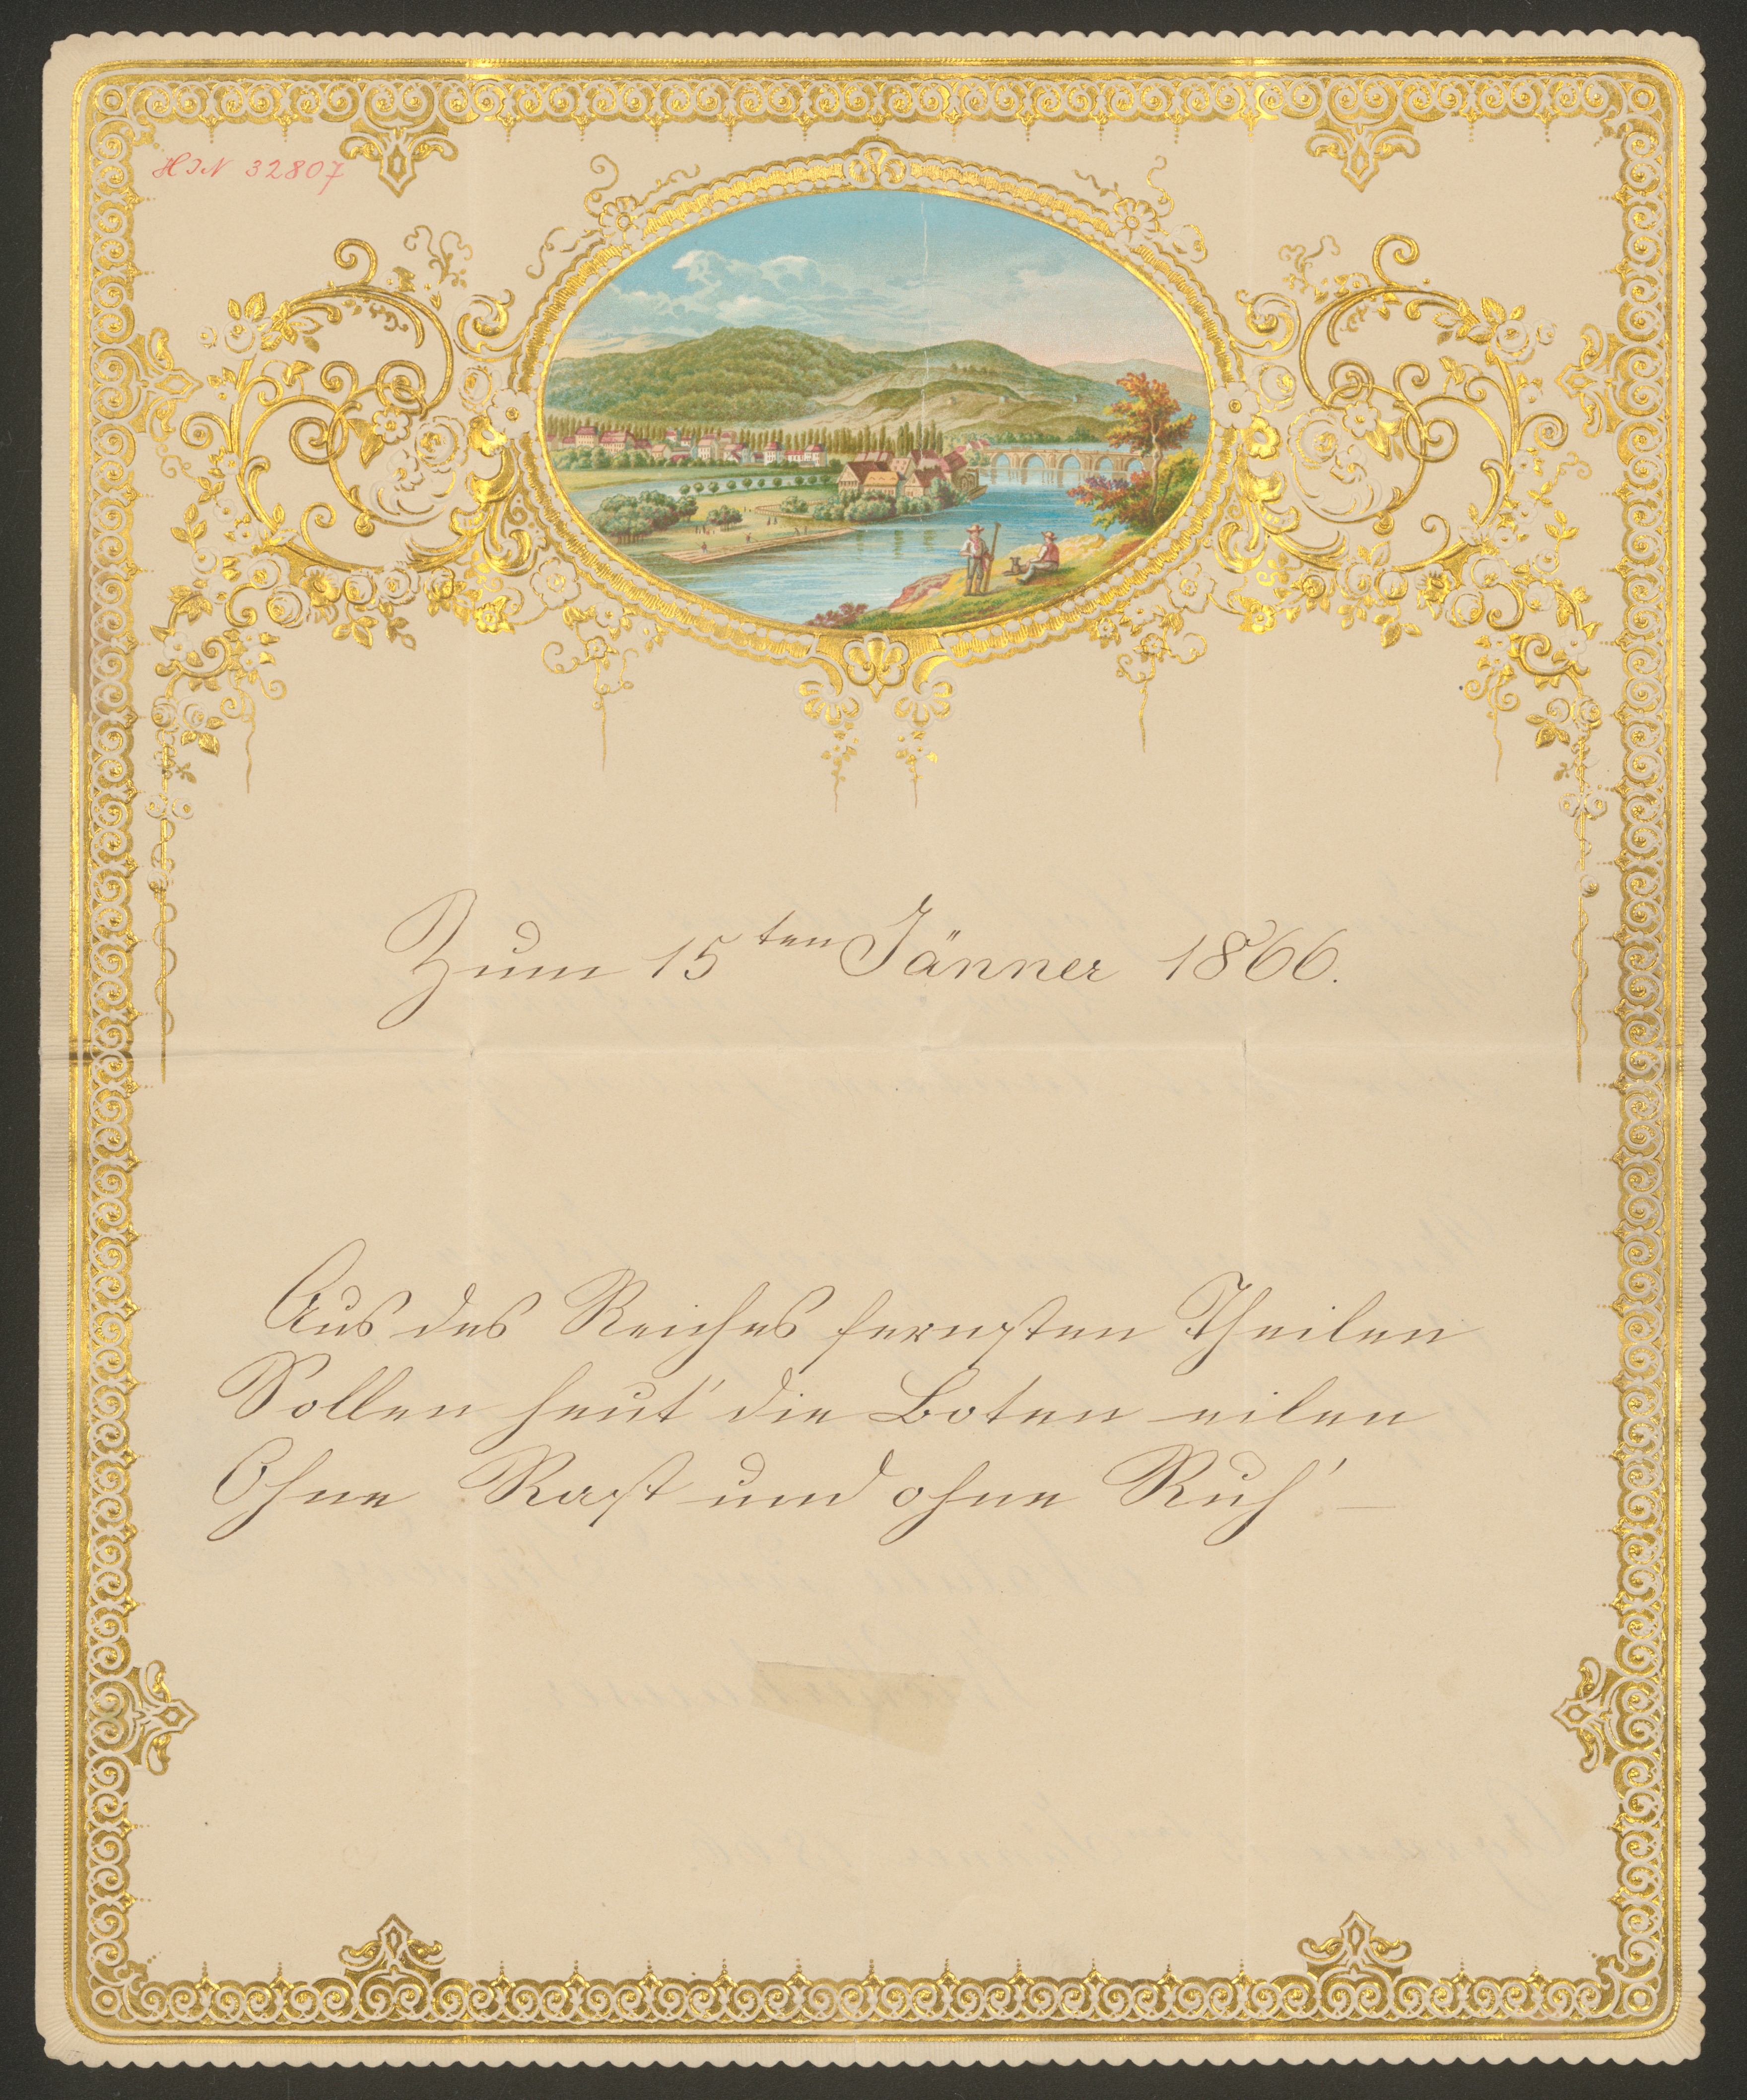 HIN 32807
Zum 15ten Jänner 1866.
Aus des Reiches fernsten Theilen
Sollen heut' die Boten eilen
Ohne Rast und ohne Ruh' –